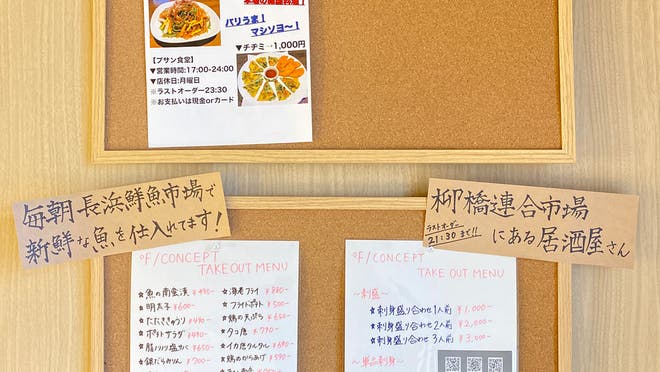 バリうま！
マシソヨ〜！
▼チヂミ→1,000円
【プサン食堂】
▼営業時間:17:00-24:00
▼店休日:月曜日
※ラストオーダー23:30
※お支払いは現金orカード
毎朝長浜鮮魚市場で
新鮮な魚を仕入れてます!
柳橋連合市場
にある居酒屋さん
ラストオーダー
21:30まで!!
°F/CONCEPT
TAKE OUT MENU
☆魚の南蛮漬 ¥490-
☆明太子 ¥600-
☆たたききゅうり ¥490-
☆ポテトサラダ ¥490-
¥650-
☆銀だらみりん ¥700-
☆海老フライ ¥880-
☆フライドポテト ¥500-
☆鶏の天ぷら ¥650-
☆タコ唐 ¥790-
☆イカ唐タルタル ¥690-
☆鶏のからあげ ¥590-
°F/CONCEPT
TAKE OUT MENU
〜刺盛〜
☆刺身盛り合わせ1人前 ¥1,000-
☆刺身盛り合わせ2人前 ¥2,000-
☆刺身盛り合わせ3人前 ¥3,000-
〜単品刺身〜